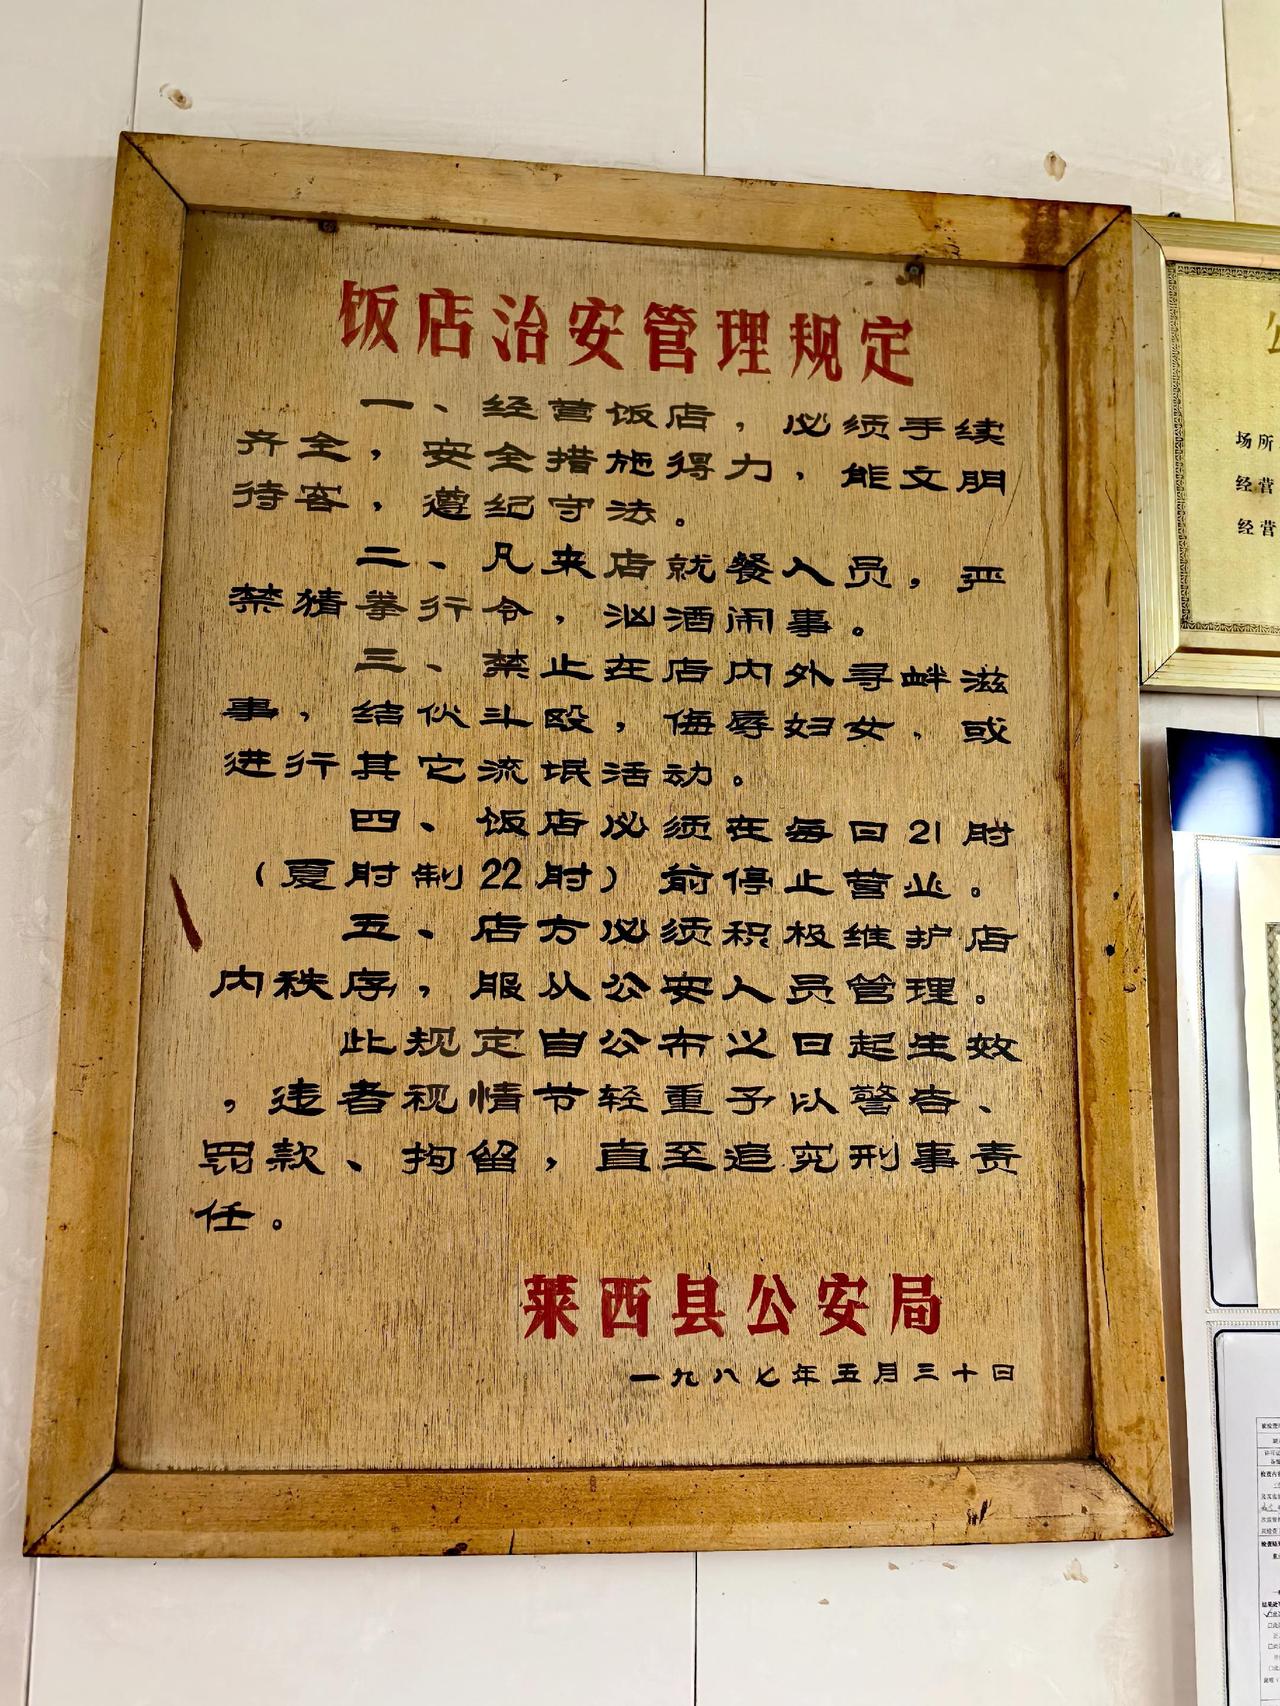 饭店治安管理规定
一、经营饭店，必须手续
齐全，安全措施得力，能文明
待客，遵纪守法。
二、凡来店就餐人员，严
禁猜拳行令，汹酒闹事。
三、禁止在店内外寻衅滋
事，结伙斗殴，侮辱妇女，或
进行其它流氓活动。
四、饭店必须在每日21时
（夏时制22时）前停止营业。
五、店方必须积极维护店
内秩序，服从公安人员管理。
此规定自公布之日起生效
，违者视情节轻重予以警告、
罚款、拘留，直至追究刑事责
任。
莱西县公安局
一九八七年五月三十日
场所
经营
经营